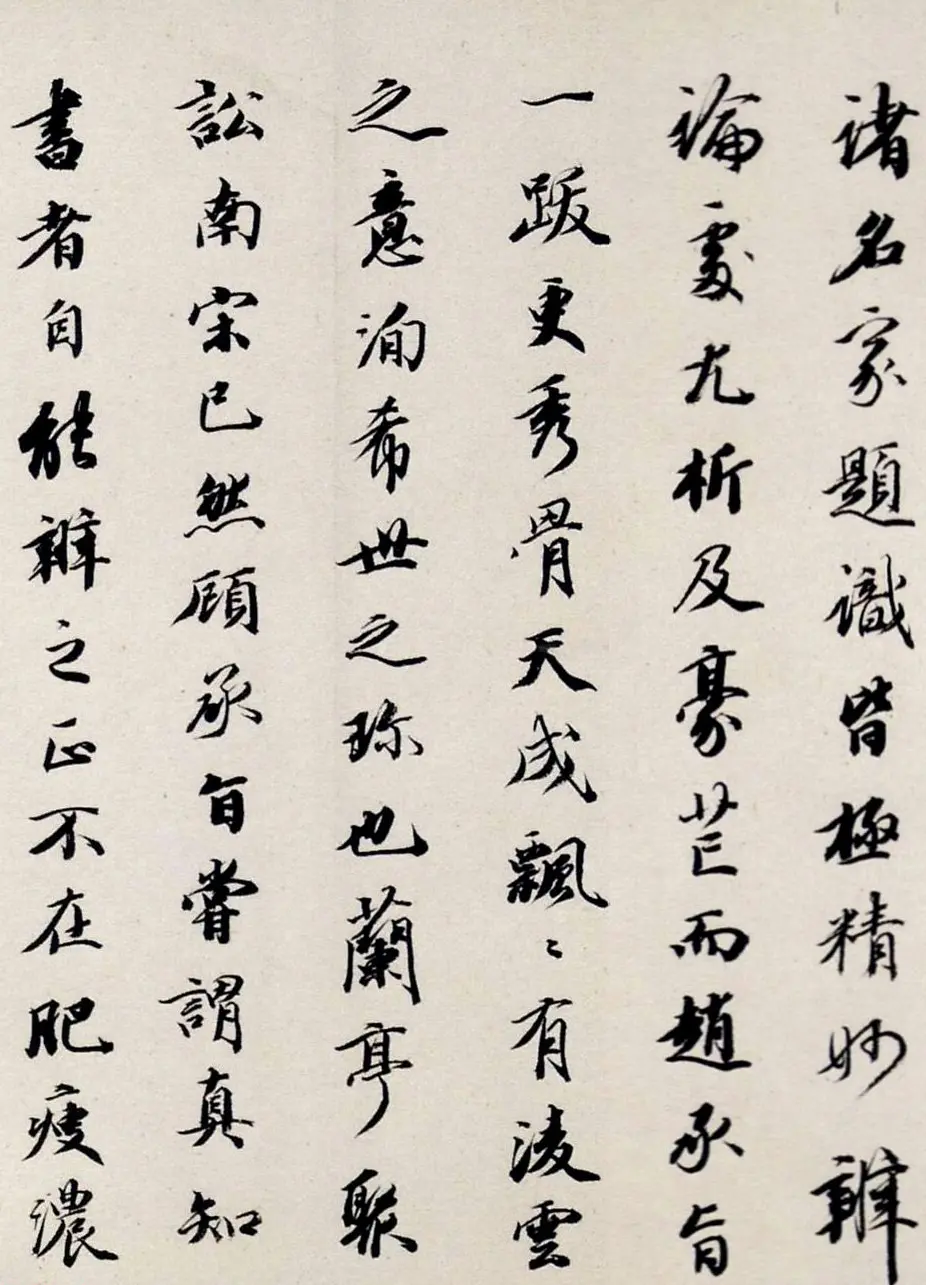 諸名家題識皆極精妙辨
論處尤析及豪芒而趙承旨
一跋更秀骨天成飄〻有淩雲
之意洵希世之珎也蘭亭聚
訟南宋已然顧承旨嘗謂真知
書者自能辨之正不在肥瘦濃